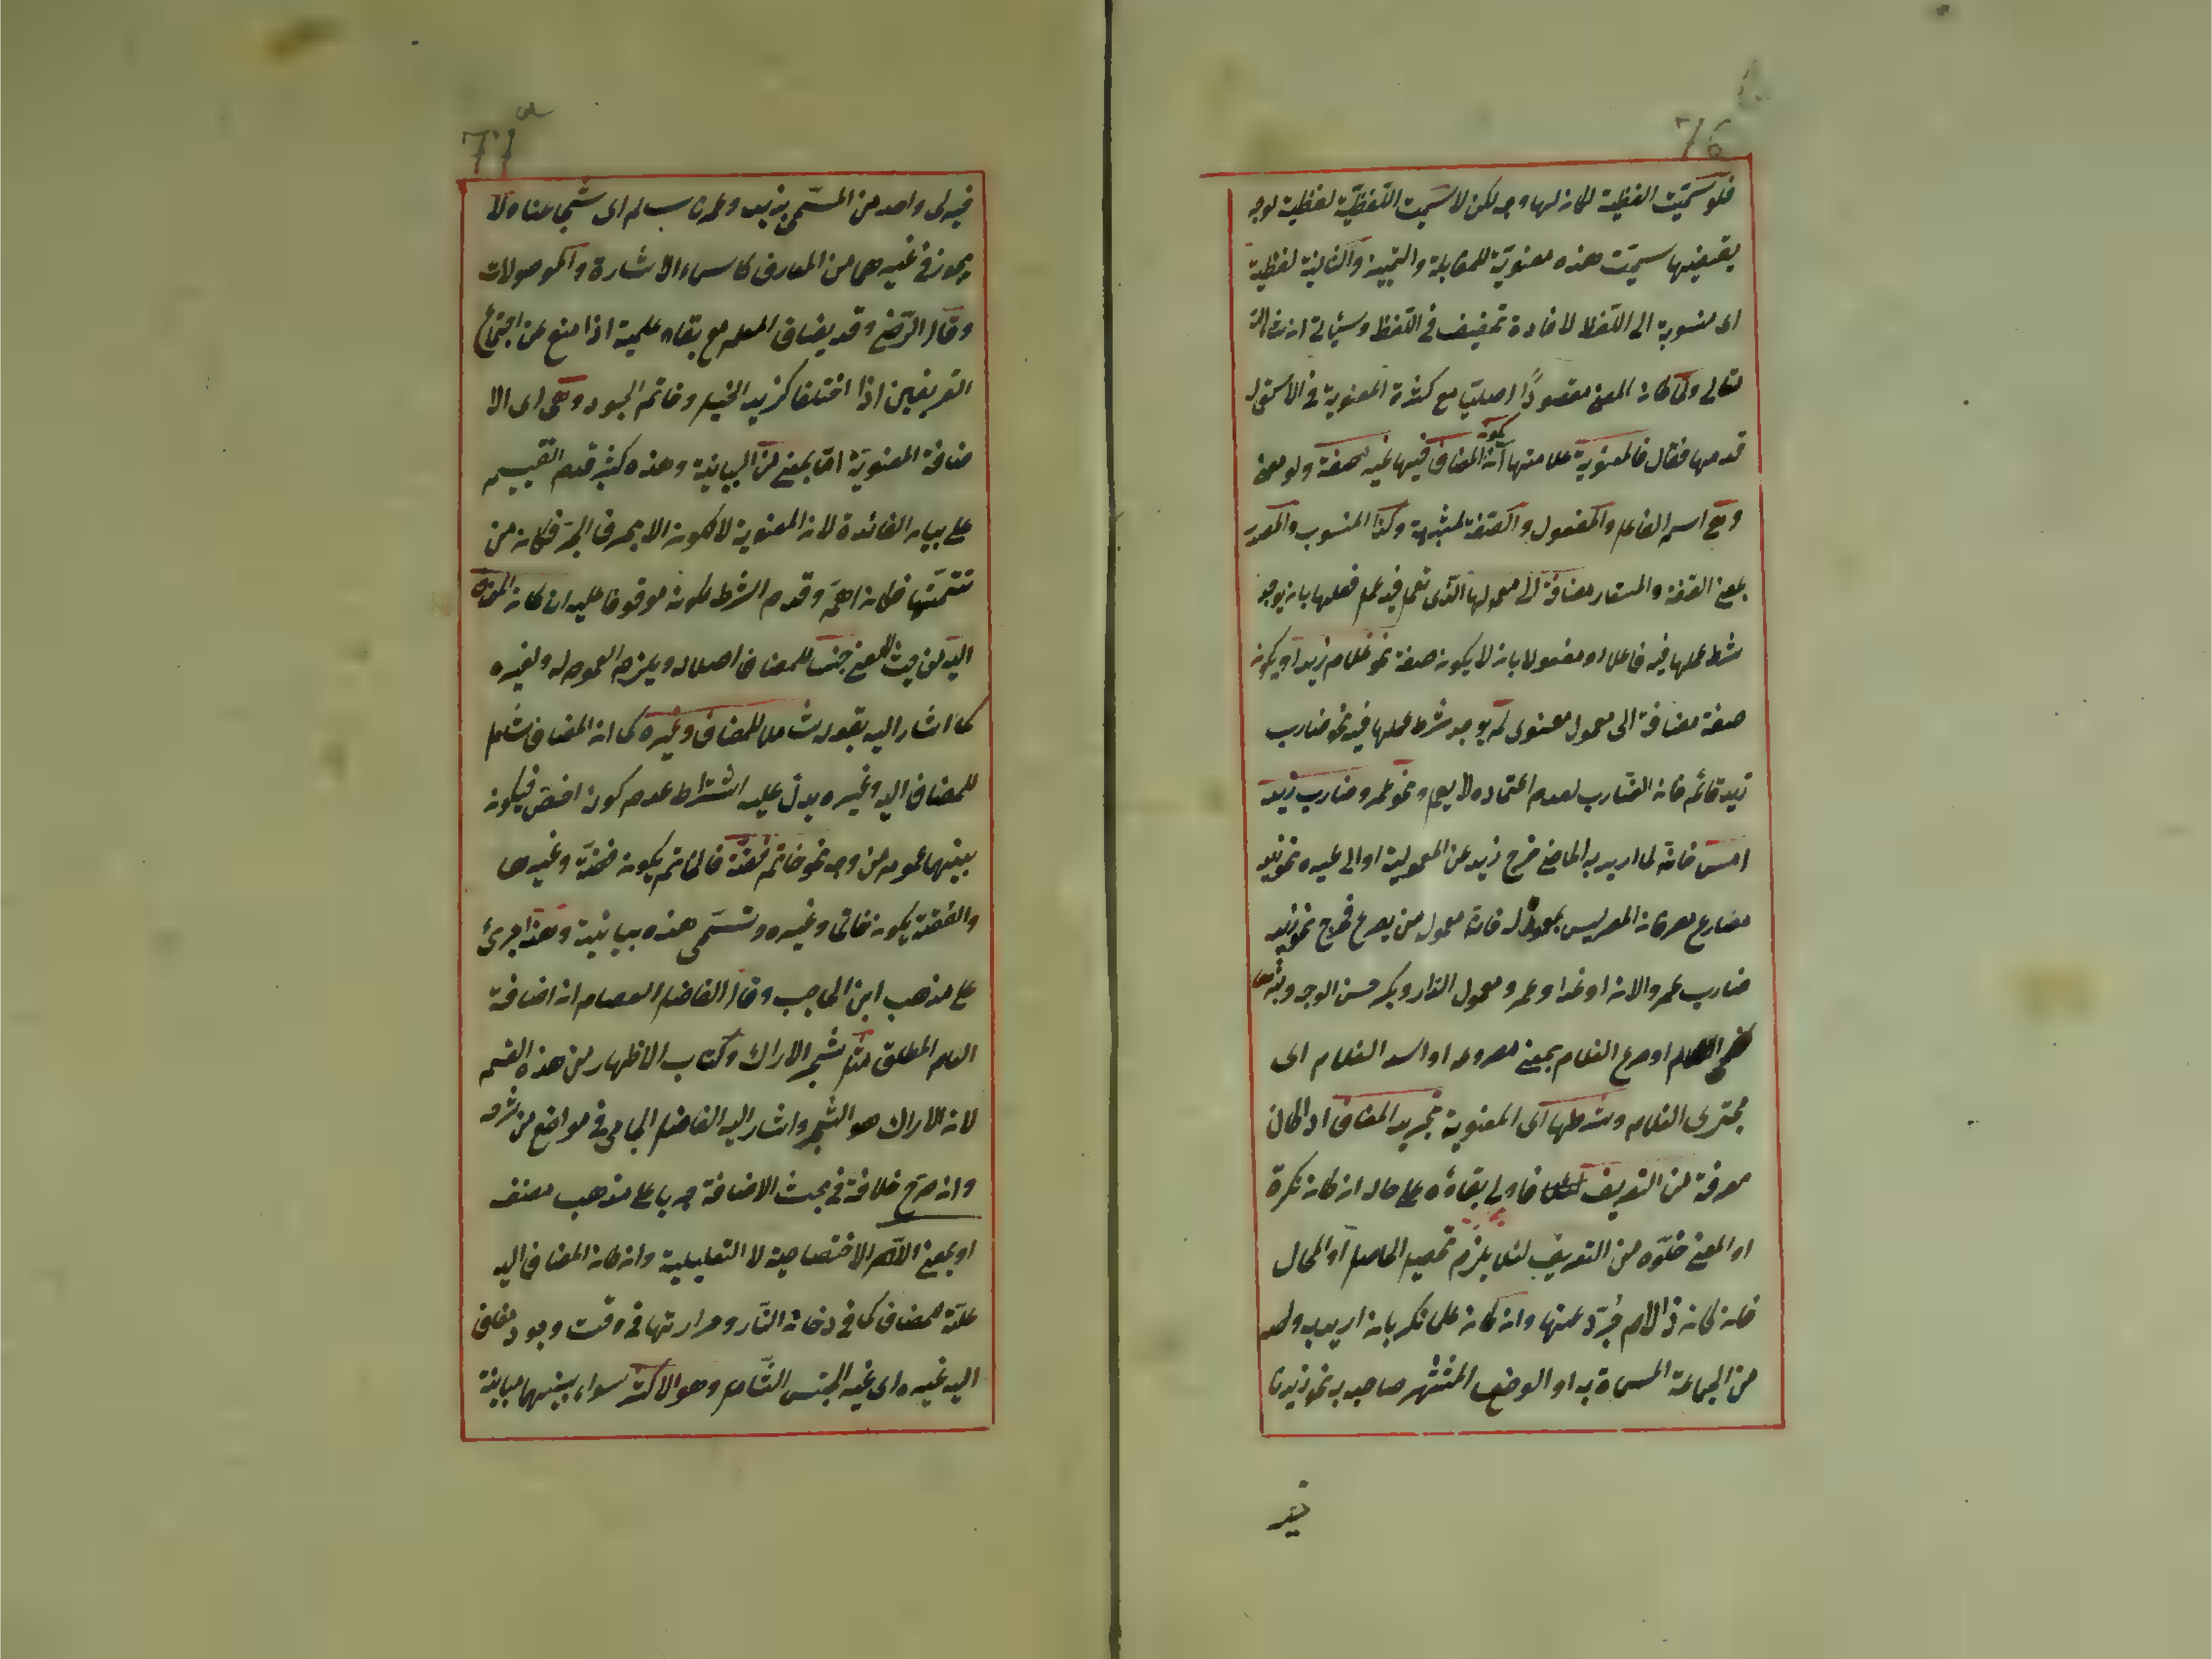 76
فلو سميت اللفظية لكان لها وجه لكن لا سميت اللفظية لفظية لوجه
يقتضيها سميت هذه معنوية للمقابلة والتمييز والثانية لفظية
اى منسوبة الى اللفظ لافادة تخفيف فى اللفظ وسيأتى ان شاء الله
تعالى ولما كان المعنى مقصودًا اصليا مع كثرة المعنوية فى الاستعمال
قدمها فقال فالمعنوية علامتها ان كون المضاف فيها غير صفة ولو معنى
وهى اسم الفاعل والمفعول والصفة المشبهة وكذا المنسوب والمصدر
بمعنى الصفة والمستعار مضافة الى معمولها الذى تعمل فيه عمل فعلها بان يوجد
شرط عملها فيه فاعلا او مفعولا بان لا يكون صفة نحو غلام زيد او يكون
صفة مضافة الى معمول معنوى لم يوجد شرط عملها فيه نحو ضارب
زيد قائم فان الضارب لعدم اعتماده لا يعمل ونحو عمرو ضارب زيد
امس فانه لما اريد به الماضى خرج زيد عن المعمولية او الى غيره نحو زيد
مضارع مصر فان المصر ليس بمعموله فانه معمول من يصرع فخرج نحو زيد
ضارب عمرو الان او غدا وعمرو معمول الدار وبكر حسن الوجه
او مصرع الغلام بمعنى مصروعه او اسد الغلام اى
مجترى الغلام وشرطها اى المعنوية تجريد المضاف اذا كان
معرفة من التعريف فاولى بقاؤه على حاله ان كان نكرة
او المعنى خلوّه من التعريف لئلا يلزم تحصيل الحاصل او المحال
فان كان ذا اللام جرّد عنها وان كان علما نكر بان اريد به واحد
من الجماعة المسماة به او الوصف المشتهر صاحبه به نحو زيدنا
فيه
77
فيه اى واحد من المسمى بزيد وعمرنا اى شجاعنا ولا
يجوز فى غيرها من المعارف كاسماء الاشارة والموصولات
وقال الرضى وقد يضاف العلم مع بقاء علمية اذا منع من اجتماع
التعريفين اذا اختلفا كزيد الخيل وحاتم الجود وهى اى الا
ضافة المعنوية اما بمعنى من البيانية وهذه كثير قدم التقسيم
على بيان الفائدة لان المعنوية لا تكون الا بحرف الجر فكان من
تتمتها فكان اهم وقدم الشرط لكونه موقوفا عليه ان كان المضاف
اليه من حيث المعنى جنسا للمضاف اصلا له ويلزمه العموم له ولغيره
كما اشار اليه بقوله شاملا للمضاف وغيره كما ان المضاف شامل
للمضاف اليه وغيره يدل عليه اشتراط عدم كونه اخص فيكون
بينهما عموم من وجه نحو خاتم فضة فالخاتم يكون فضة وغيرها
والفضة يكون خاتما وغيره وتسمى هذه بيانية وهذا جرى
على مذهب ابن الحاجب وقال الفاضل العصام ان اضافة
العام المطلق مثل شجر الاراك وكتاب الاظهار من هذه القسم
لان الاراك هو الشجر واشار اليه الفاضل الجامى فى مواضع من شرحه
وان صرح خلافة فى بحث الاضافة جريا على مذهب مصنف
او بمعنى اللام الاختصاصية لا التعليلية وان كان المضاف اليه
علة للمضاف كما فى دخان النار وحرارتها فى وقت وجود مضاف
اليه غيره اى غير الجنس الشامل وهو الاكثر سواء بينهما مباينة